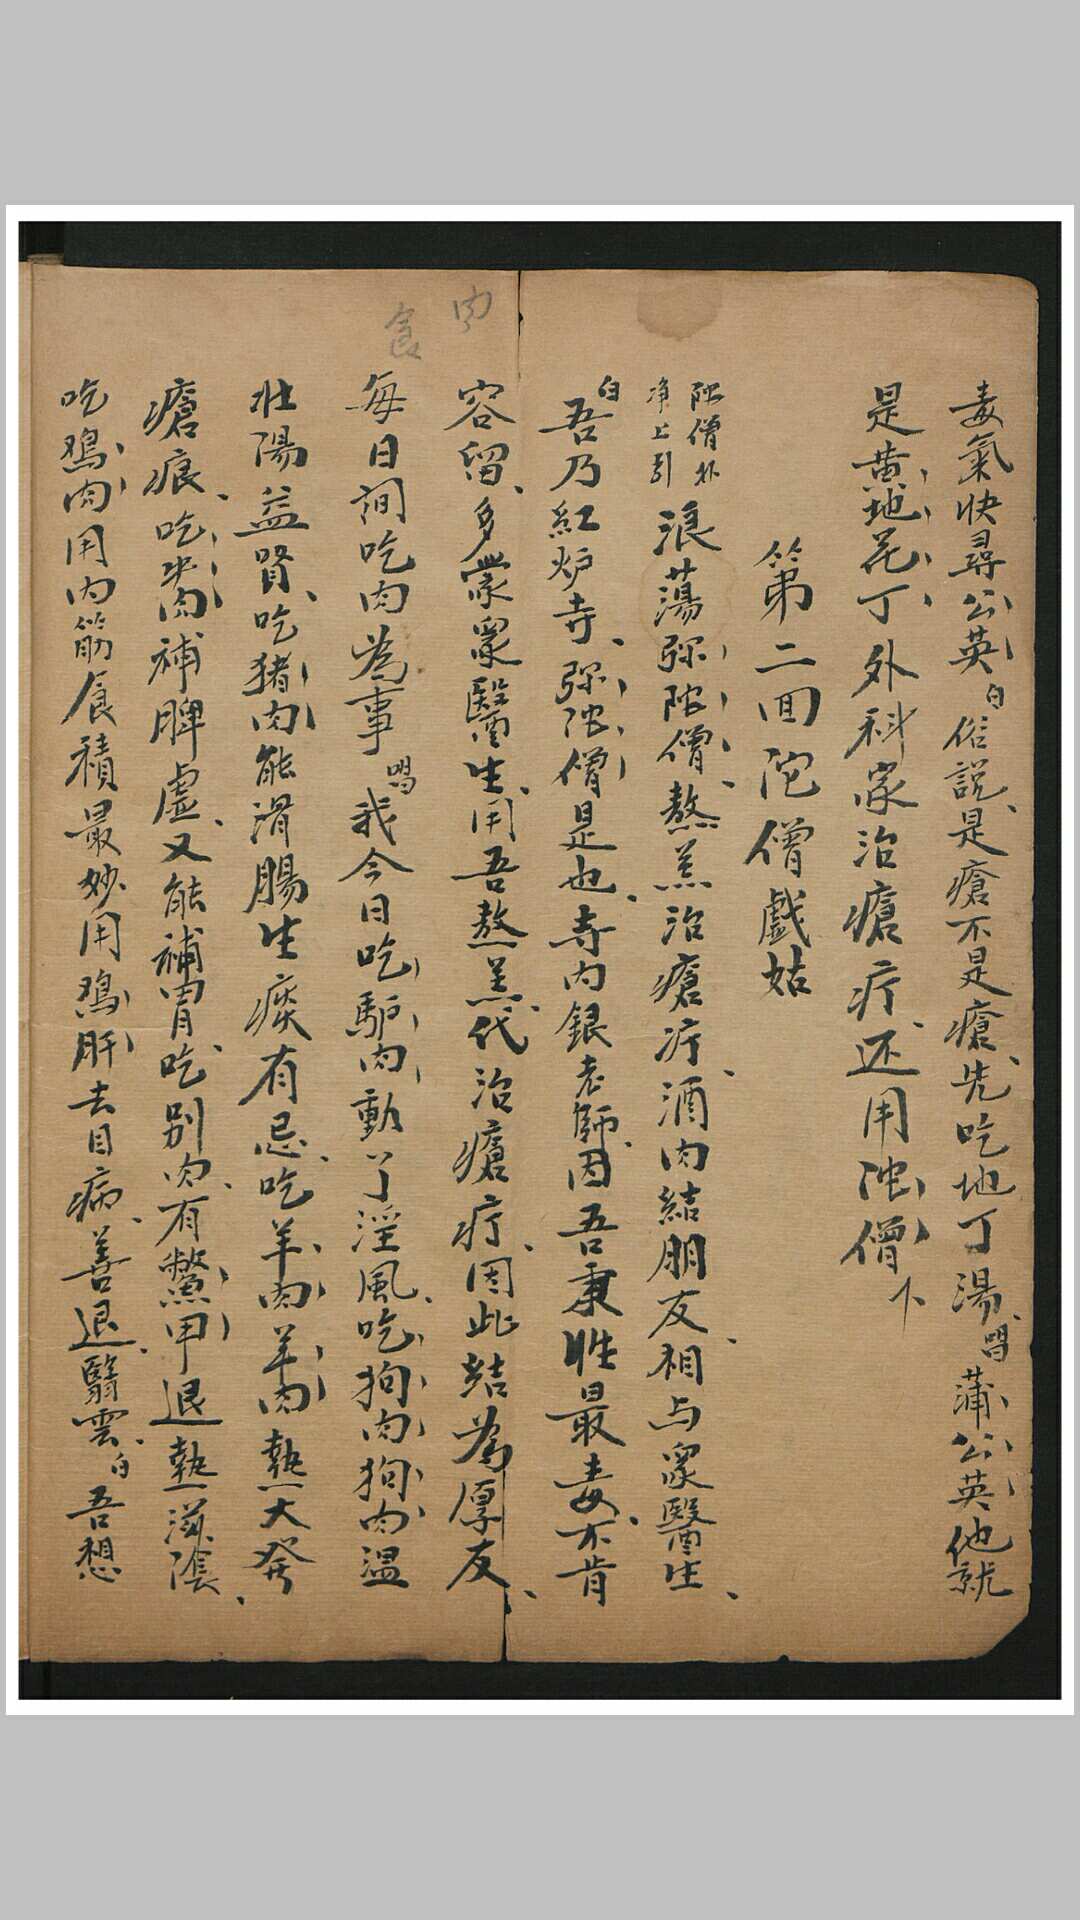 毒氣快尋公英白俗說是瘡不是瘡先吃地丁湯唱蒲公英他就
是黄地花丁外科家治瘡疔还用陀僧下
第二回陀僧戲姑
陀僧扑
净上引
浪蕩弥陀僧熬羔治瘡疔酒肉結朋友相与衆醫生
白吾乃紅炉寺弥陀僧是也寺内銀老師因吾秉性最毒不肯
容留多蒙衆醫生用吾熬羔代治瘡疔因此結為厚友
肉
食
每日间吃肉為事唱我今日吃馿肉動了淫風吃狗肉狗肉温
壮陽益腎吃猪肉能滑腸生痰有忌吃羊肉羊肉熱大發
瘡痕吃牛肉補脾虚又能補胃吃别肉有鱉甲退熱滋陰
吃鸡肉用内筋食積最妙用鸡肝去目病善退翳雲白吾想